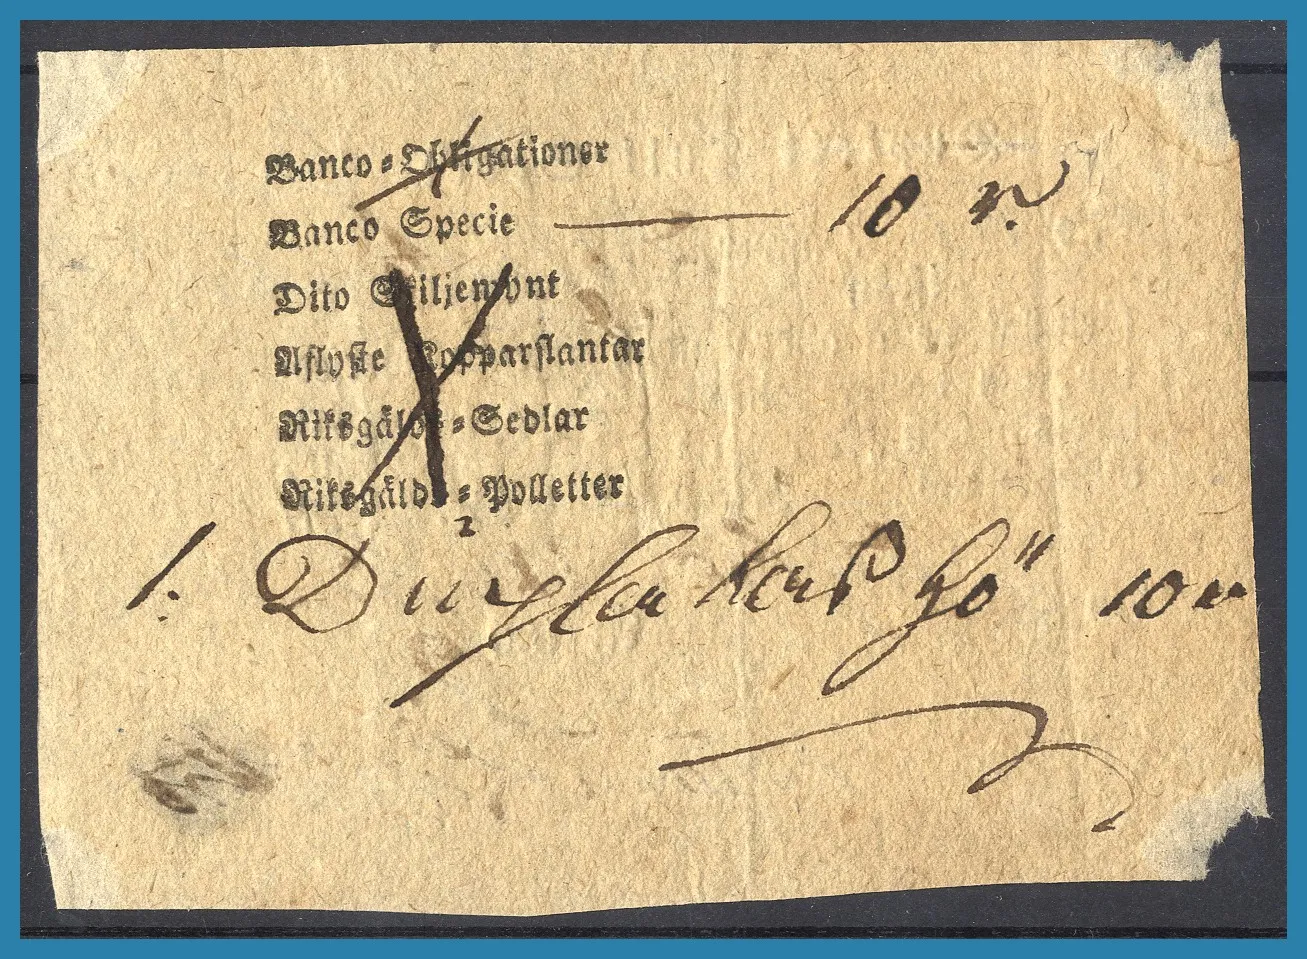 Banco-Obligationer
Banco Specie — 10 r.
Dito Skiljemynt
Aflyste Kopparslantar
Riksgälds-Sedlar
Riksgälds-Polletter
1. 10